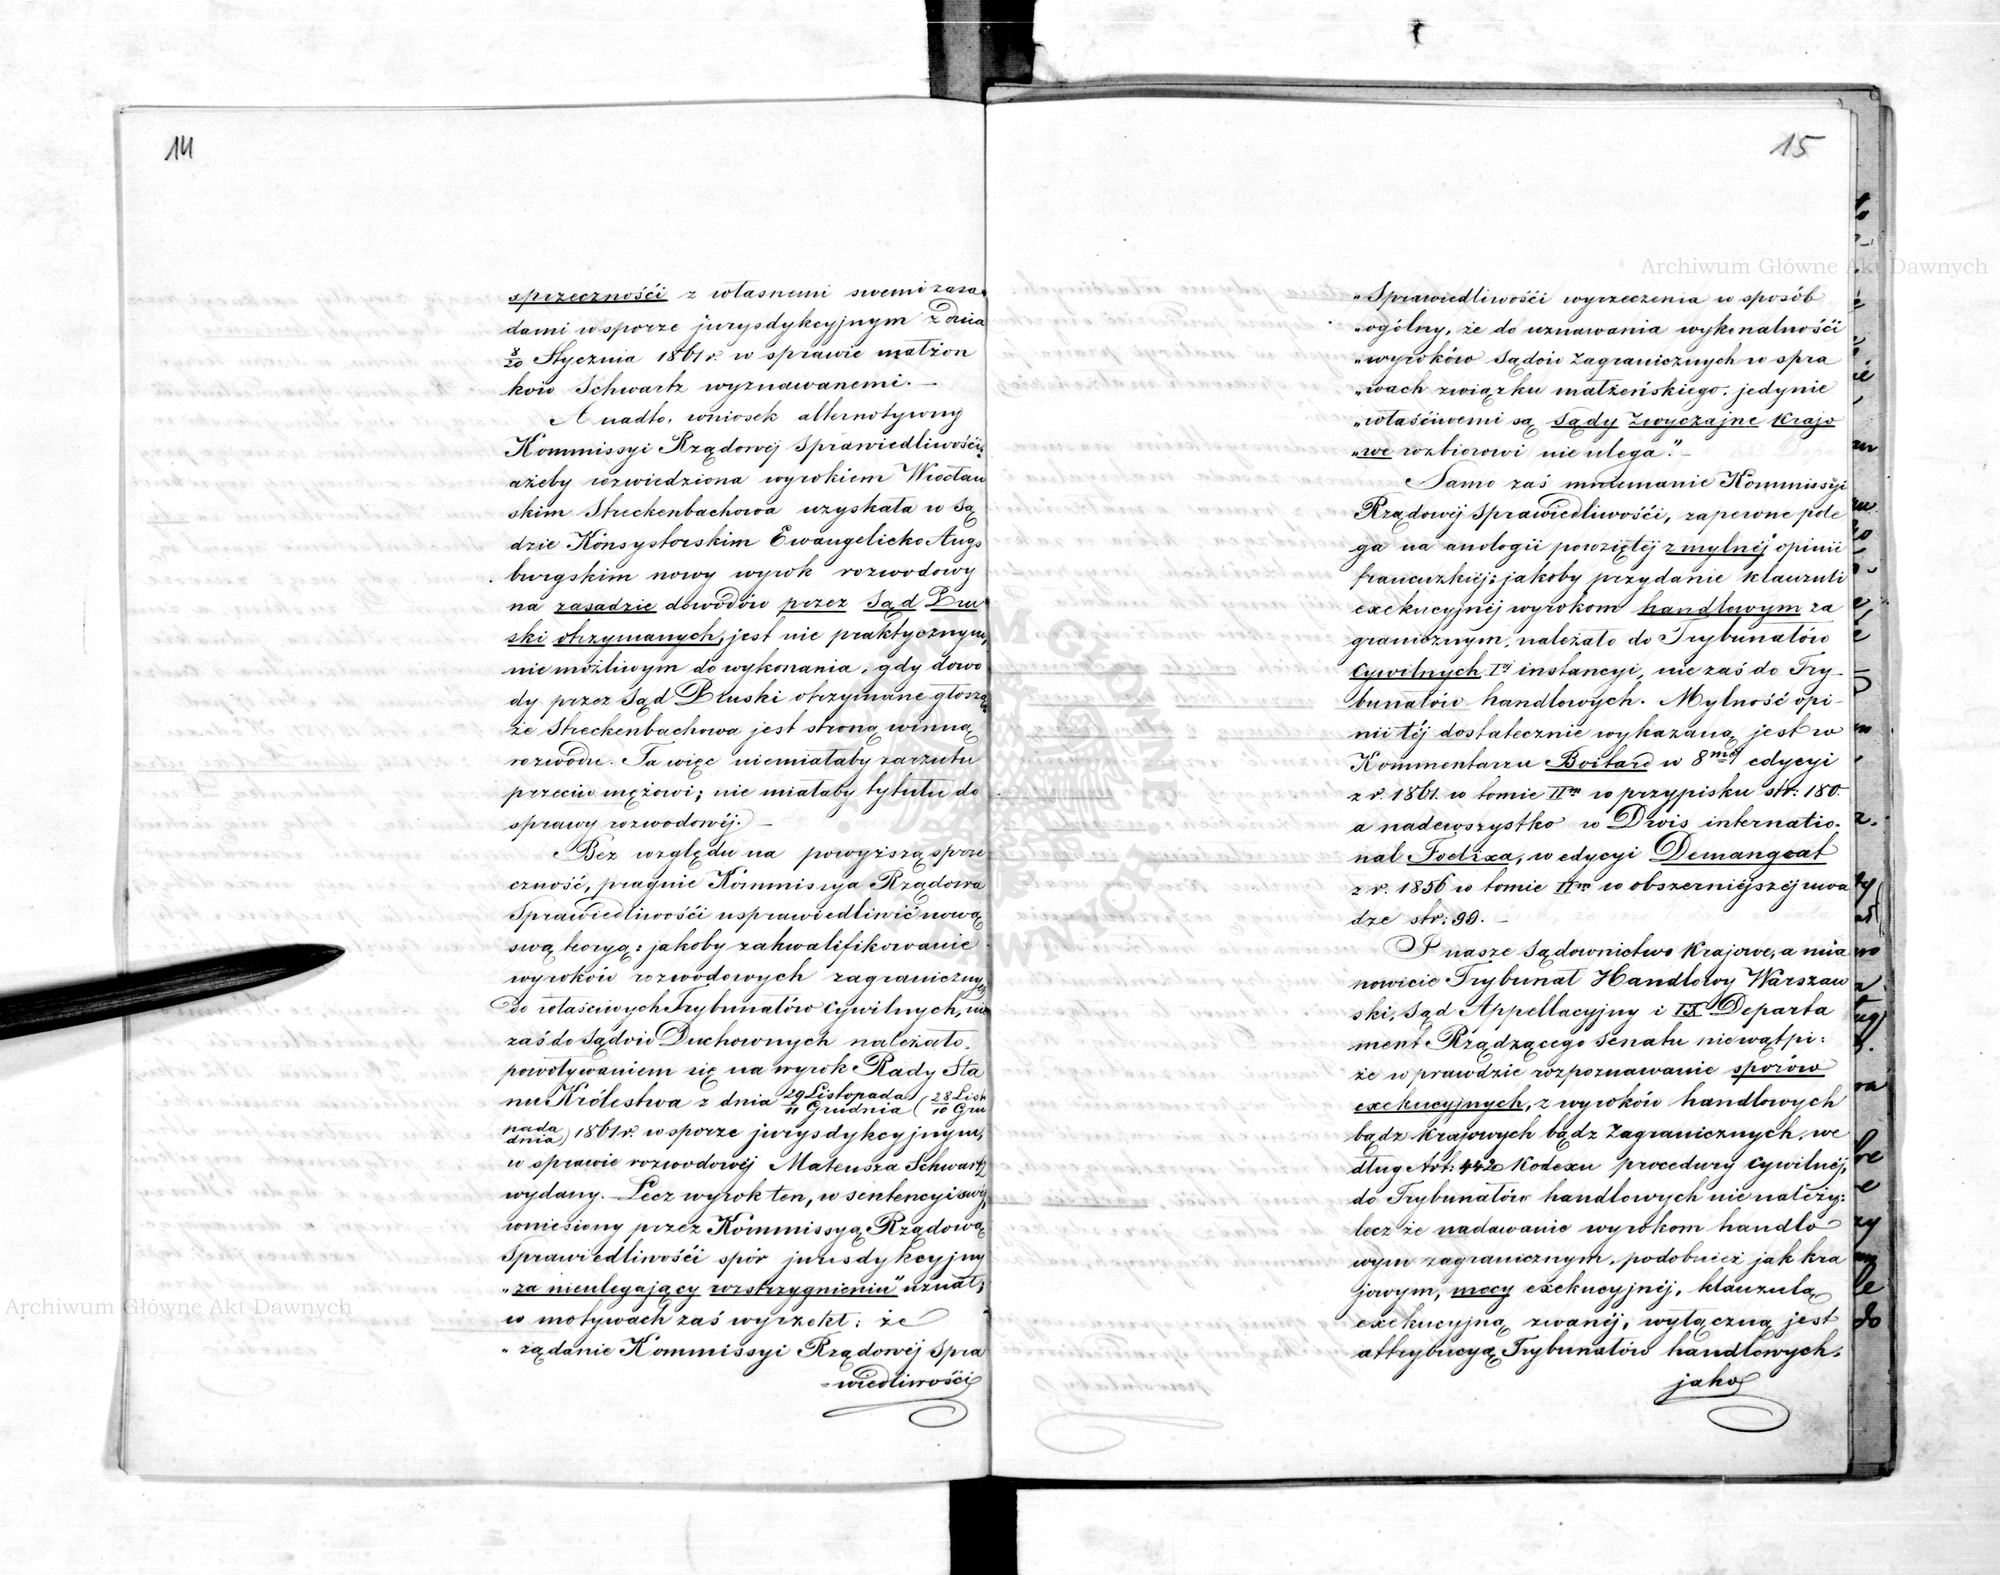 14
sprzeczności z własnemi swemi zasa
dami w sporze jurysdykcyjnym z dnia
8/20 Stycznia 1861 r. w sprawie małżon
ków Schwartz wyznawanemi. —
A nadto, wniosek alternotywny
Kommissyi Rządowéj Sprawiedliwości:
ażeby rozwiedziona wyrokiem Wrocław
skim Streckenbachowa uzyskała w Są
dzie Konsystorskim Ewangelicko Augs
burgskim nowy wyrok rozwodowy
na zasadzie dowodów przez Sąd Pru
ski otrzymanych, jest nie praktycznym,
nie możliwym do wykonania, gdy dowo
dy przez Sąd Pruski otrzymane głoszą,
że Streckenbachowa jest stroną winną
rozwodu. Ta więc niemiałaby zarzutu
przeciw mężowi; nie miałaby tytułu do
sprawy rozwodowéj. —
Bez względu na powyższą sprze
czność, pragnie Kommissya Rządowa
Sprawiedliwości usprawiedliwić nową
swą teoryą: jakoby zakwalifikowanie
wyroków rozwodowych zagranicznych
do właściwych Trybunałów cywilnych, nie
zaś do Sądów Duchownych należało,
powoływaniem się na wyrok Rady Sta
nu Królestwa z dnia 29 Listopada/11 Grudnia (28 Listo/10 Gru
pada/dnia) 1861 r. w sporze jurysdykcyjnym,
w sprawie rozwodowéj Mateusza Schwartz
wydany. Lecz wyrok ten, w sentencyi swéj,
wniesiony przez Kommissyą Rządową
Sprawiedliwości spór jurisdykcyjny
„za nieulegający rozstrzygnieniu" uznał;
w motywach zaś wyrzekł: że
„żądanie Kommissyi Rządowéj Spra
-wiedliwości
15
„Sprawiedliwości wyrzeczenia w sposób
„ogólny, że do uznawania wykonalności
„wyroków Sądów Zagranicznych w spra
„wach związku małżeńskiego, jedynie
„właściwemi są Sądy Zwyczajne Krajo
„we rozbiorowi nie ulega". —
Samo zaś mniemanie Kommissyi
Rządowéj Sprawiedliwości, zapewne pole
ga na anologii powziętéj z mylnéj opinii
francuzkiéj; jakoby przydanie klauzuli
exekucyjnéj wyrokom handlowym za
granicznym, należało do Trybunałów
Cywilnych Iéj instancyi, nie zaś do Try-
bunałów handlowych. Mylność opi-
nii téj dostatecznie wykazaną jest w
Kommentarzu Boitard w 8méj edycyi
z r. 1861. w tomie IIm w przypisku str: 180.
a nadewszystko w Drois internatio-
nal Foelixa, w edycyi Demangeat
z r. 1856 w tomie IIm w obszerniéjszéj uwa
dze str: 90. —
I nasze Sądownictwo Krajowe, a mia
nowicie Trybunał Handlowy Warszaw
ski, Sąd Appellacyjny i IX Departa
ment Rządzącego Senatu niewątpi:
że wprawdzie rozpoznawanie sporów
exekucyjnych, z wyroków handlowych
bądź Krajowych bądź Zagranicznych, we
dług Art: 442 Kodexu procedury cywilnéj,
do Trybunałów handlowych nie należy;
lecz że nadawanie wyrokom handlo
wym zagranicznym, podobnież jak kra
jowym, mocy exekucyjnéj, klauzulą
exekucyjną zwanéj, wyłączną jest
attrybucyą Trybunałów handlowych,
jako
Archiwum Główne Akt Dawnych
Archiwum Główne Akt Dawnych